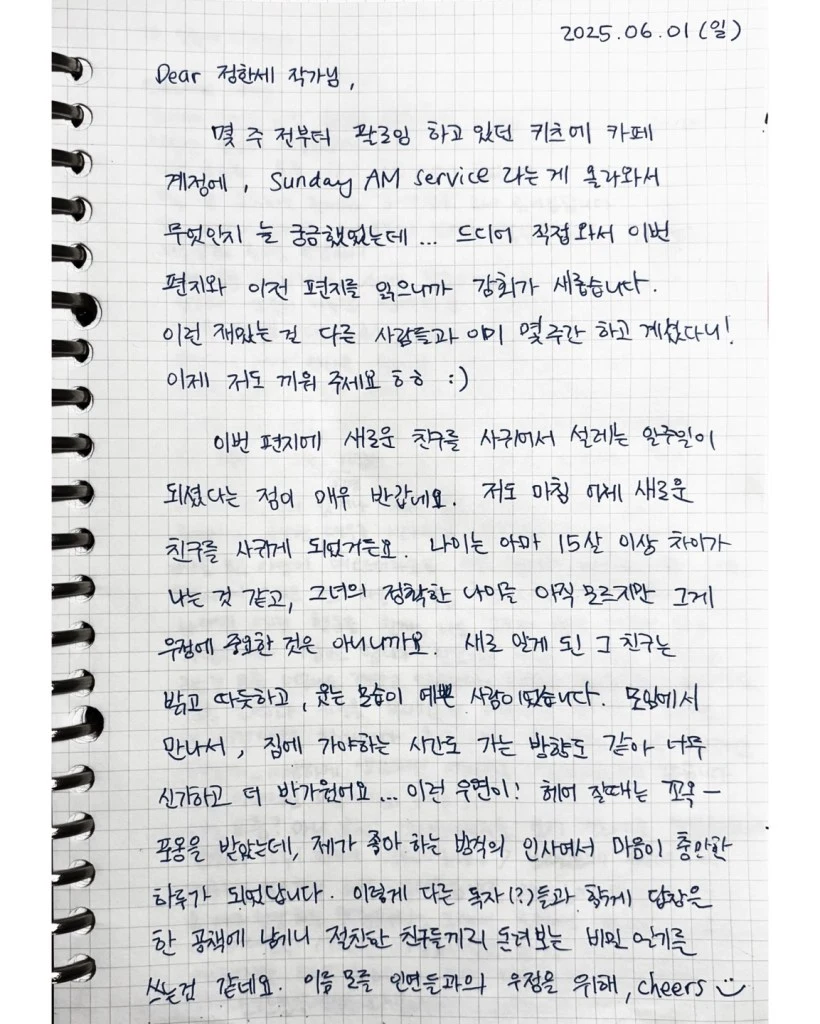 2025.06.01 (일)
Dear 정한세 작가님,
몇 주 전부터 팔로잉 하고 있던 키츠에 카페
계정에, Sunday AM service 라는게 올라와서
무엇인지 늘 궁금했었는데... 드디어 직접 와서 이번
편지와 이전 편지를 읽으니까 감회가 새롭습니다.
이런 재밌는 걸 다른 사람들과 이미 몇주간 하고 계셨다니!
이제 저도 끼워 주세요 ㅎㅎ :)
이번 편지에 새로운 친구를 사귀어서 설레는 일주일이
되셨다는 점이 매우 반갑네요. 저도 마침 어제 새로운
친구를 사귀게 되었거든요. 나이는 아마 15살 이상 차이가
나는 것 같고, 그녀의 정확한 나이를 아직 모르지만 그게
우정에 중요한 것은 아니니까요. 새로 알게 된 그 친구는
밝고 따듯하고, 웃는 모습이 예쁜 사람이었습니다. 모임에서
만나서, 집에 가야하는 시간도 가는 방향도 같아 너무
신기하고 더 반가웠어요... 이런 우연이! 헤어 질때는 꼬옥-
포옹을 받았는데, 제가 좋아 하는 방식의 인사여서 마음이 충만한
하루가 되었답니다. 이렇게 다른 독자(?)들과 함께 답장을
한 공책에 남기니 절친한 친구들끼리 돌려보는 비밀 일기를
쓰는건 같네요. 이름 모를 인연들과의 우정을 위해, cheers